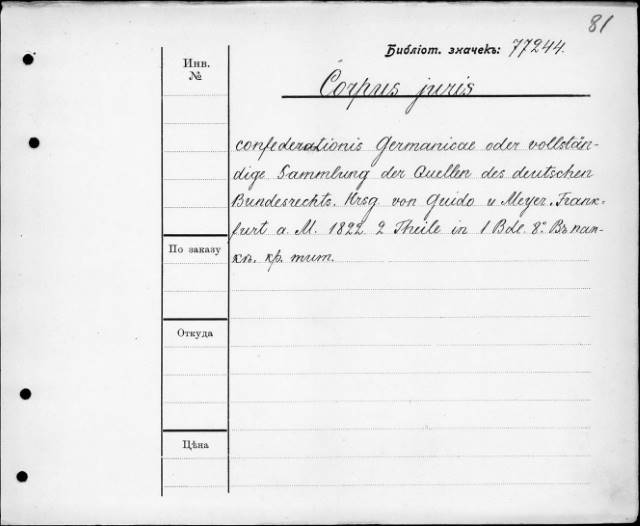 81
Библіот. значекъ: 77244.
Инв.
№
Corpus juris
confederationis Germanicae oder vollstän-
dige Sammlung der Quellen des deutschen
Bundesrechts. Hrsg. von Guido v Meyer. Frank-
furt a. M. 1822. 2 Theile in 1 Bde. 8º. Въ пап-
кѣ. кр. тит.
По заказу
Откуда
Цѣна